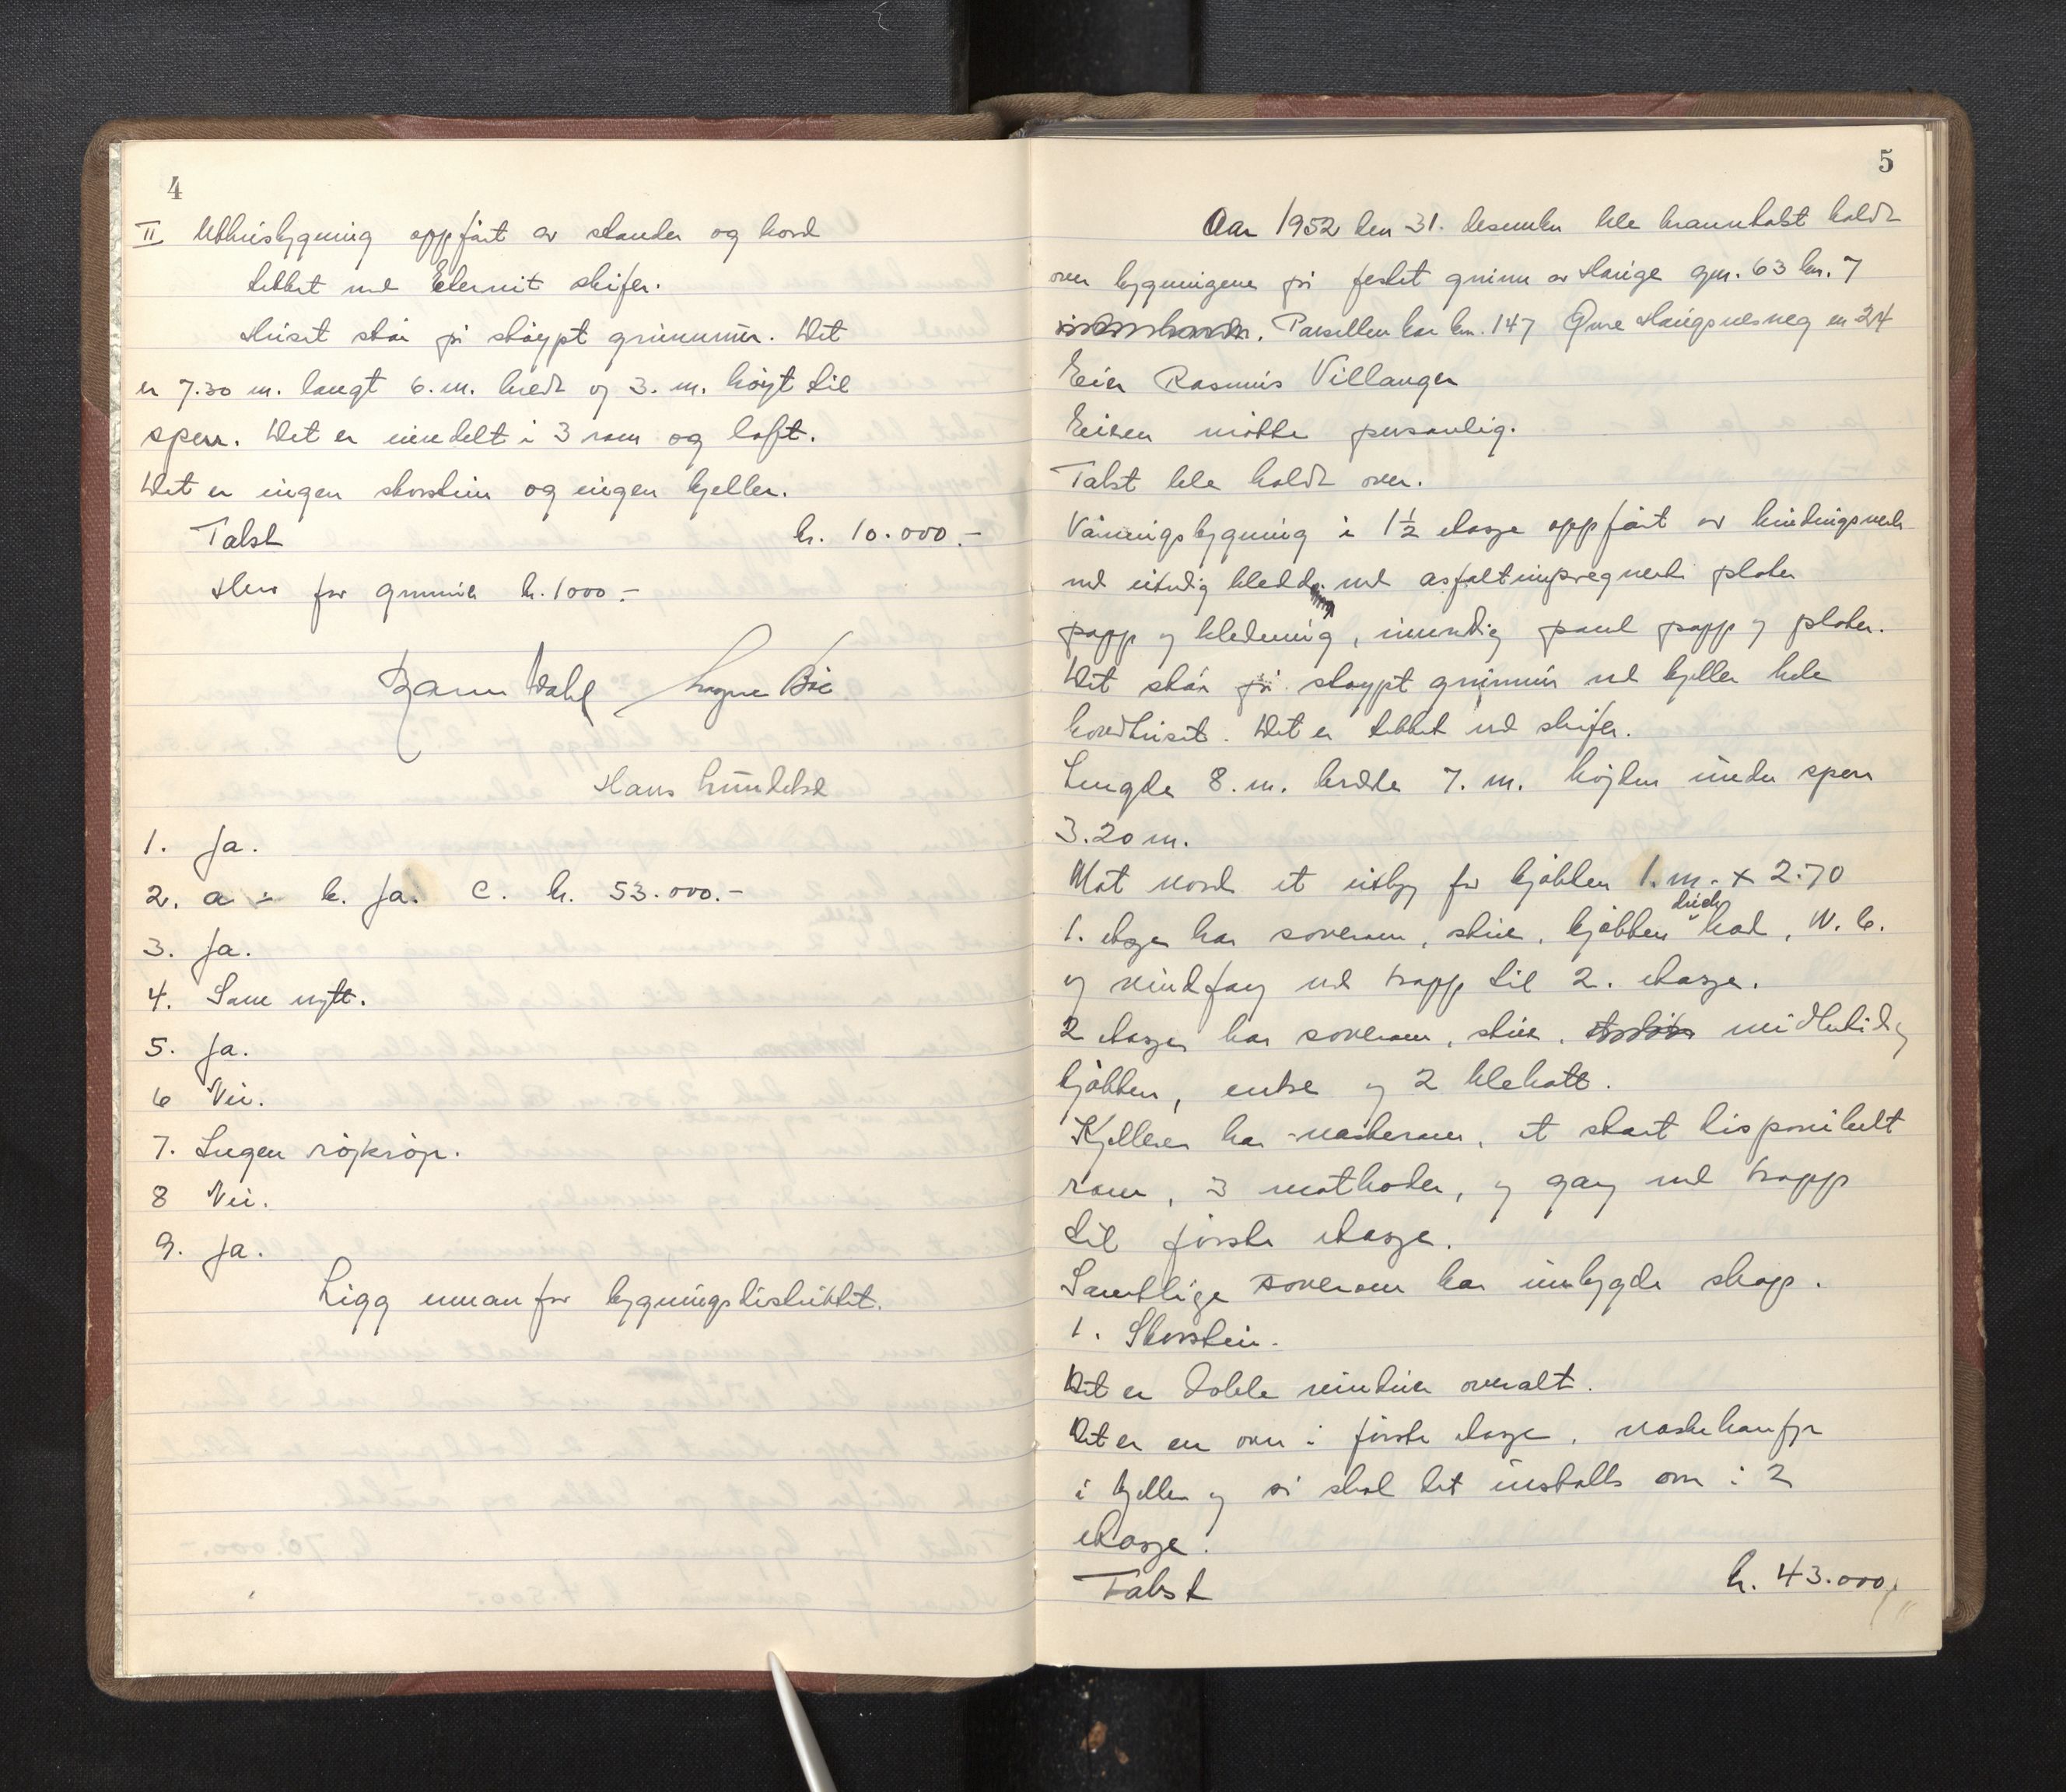 4
II Uthusbygning oppført av stander og bord
tekket med Eternit skifer.
Huset står på støypt grunnmur. Det
er 7.30 m. langt 6. m. bredt og 3. m. høyt til
sperr. Det er inndelt i 3 rom og loft.
Det er ingen skorstein og ingen kjeller.
Takst kr. 10.000.-
Herav for grunnmur kr. 1000.-
Bjarne Dahl Magne Bøe
Hans Lundekvd
1. Ja.
2. a ÷ b. Ja. C. kr. 53.000.-
3. Ja.
4. Som nytt.
5. Ja.
6 Nei.
7. Ingen røykrør.
8 Nei.
9. Ja.
Ligg innanfor bygningsdistriktet.
5
Aar 1952 den 31. desember ble branntakst holdt
over bygningene på festet grunn av Hauge gnr. 63 bnr. 7
Parsellen har bnr. 147 Øvre Haugsvesveg nr 24
Eier Rasmus Villanger
Eieren møtte personlig.
Takst ble holdt over.
Våningsbygning i 1½ etasje oppført av bindingsverk
med utvdig kledd med asfaltimpregnerte plater
papp og kledning, innvdig panel papp og plater.
Det står på støypt grunnmur med kjeller hele
hovedhuset. Det er tekket med skifer.
Lengde 8. m. bredde 7. m. høyden under sperr
3.20 m.
Mot nord et utbygg for kjøkken 1. m. x 2.70
1. etasje har soverom, stue, kjøkken bad, W.C.
og vindfang med trapp til 2. etasje.
2 etasje har soverom, stue, midlertidig
kjøkken, entre og 2 klekott.
Kjelleren har vaskerom, et stort disponibelt
rom, 3 matboder, og gang med trapp
til første etasje.
Samtlige soverom har innbygde skap.
1. Skorstein.
Det er doble vinduer overalt.
Det er en ovn i første etasje, vaskekomfyr
i kjeller og så skal det installs ovn i 2
etasje.
Takst kr. 43.000,-